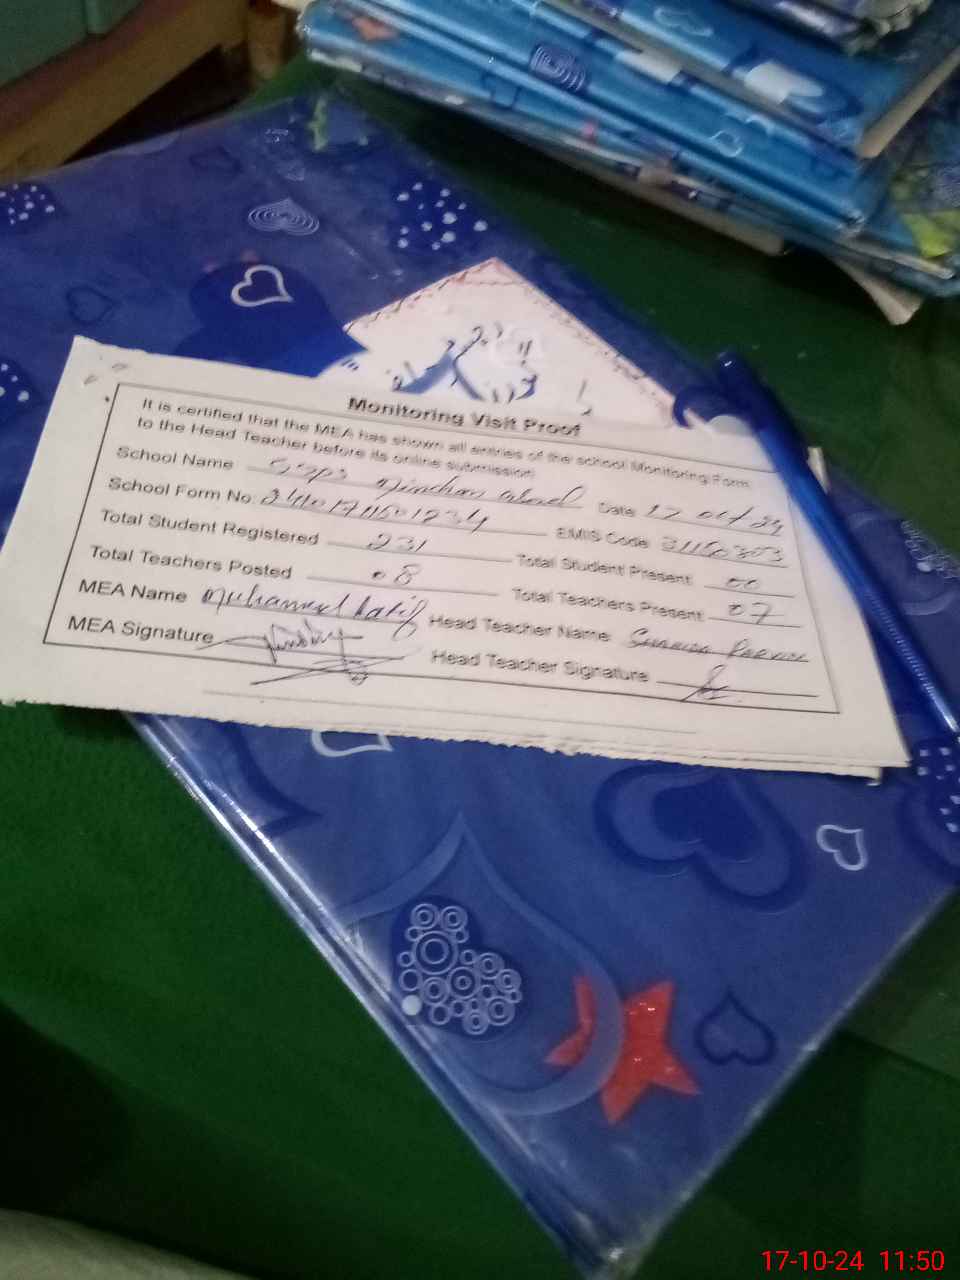 Monitoring Visit Proof
It is certified that the MEA has shown all entries of the school Monitoring Form
to the Head Teacher before its online submission
School Name Date 17 Oct 24
School Form No. EMIS Code
Total Student Registered 231 Total Student Present 00
Total Teachers Posted 08 Total Teachers Present 07
MEA Name Muhammad Latif Head Teacher Name
MEA Signature Head Teacher Signature
17-10-24 11:50